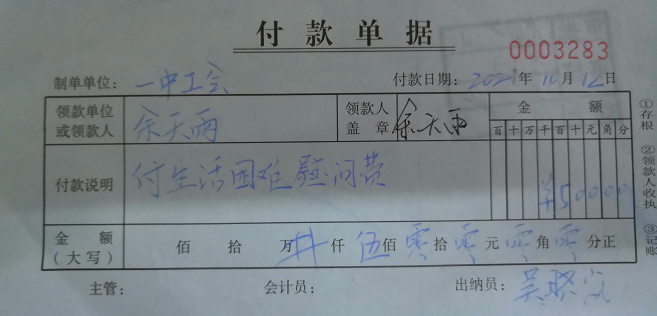 付款单据
0003283
制单单位：一中工会 付款日期：2021年10月12日
领款单位或领款人 余天雨 领款人盖章 余天雨 金额
百十万千百十元角分
付款说明 付生活困难慰问费 ¥50000
金额（大写） 佰 拾 万 仟 伍佰 零拾 零元 零角 零分正
主管： 会计员： 出纳员：吴
①存根
②领款人收执
③记账